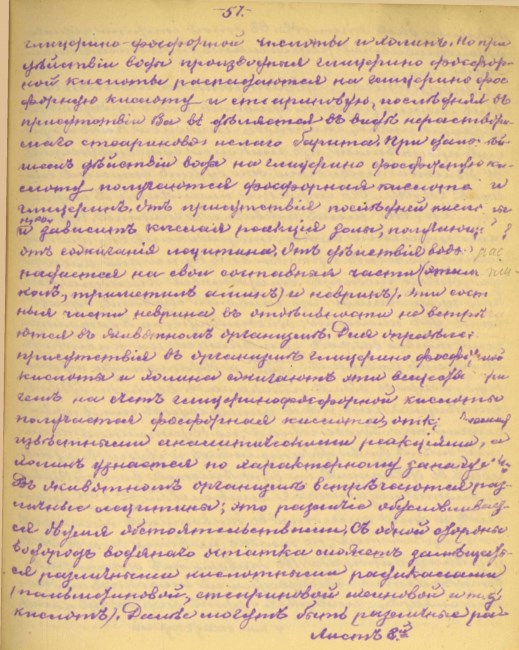 -57.-
глицерино-фосфорной кислоты и холинъ. Но при
дѣйствіи воды производная глицерино фосфор-
ной кислоты распадаются на глицерино фос
форную кислоту и стеариновую, послѣдняя въ
присутствіи Ba выдѣляется въ видѣ нераствори-
маго стеариново кислаго барита. При
дѣйствіи воды на глицерино фосфорную ки-
слоту получаются фосфорная кислота и
глицеринъ. Отъ присутствія послѣдней кисл
и зависитъ кислая реакція золы, получающ
отъ сожиганія лецитина. Отъ дѣйствія воды
падается на свои составныя части
триметил аминъ) и невринъ). Эти сост
ныя части неврина въ отдѣльности не встрѣ
ются въ животномъ организмѣ. Для опредѣле
присутствія въ организмѣ глицерино фосфор
кислоты и холина сжигаютъ эти вещества
чемъ на счетъ глицеринофосфорной кислоты
получается фосфорная кислота,
извѣстными аналитическими реакціями, а
холинъ узнается по характерному запаху
Въ животномъ организмѣ встрѣчаются раз
личные лецитины; это различіе обусловливает-
ся двумя обстоятельствами. Съ одной стороны
водородъ водянаго остатка можетъ замѣщать-
ся различными кислотными радикалами
(пальмитиновой, стеариновой
кислотъ). Далѣе могутъ быть различные ра-
Листъ 8.й